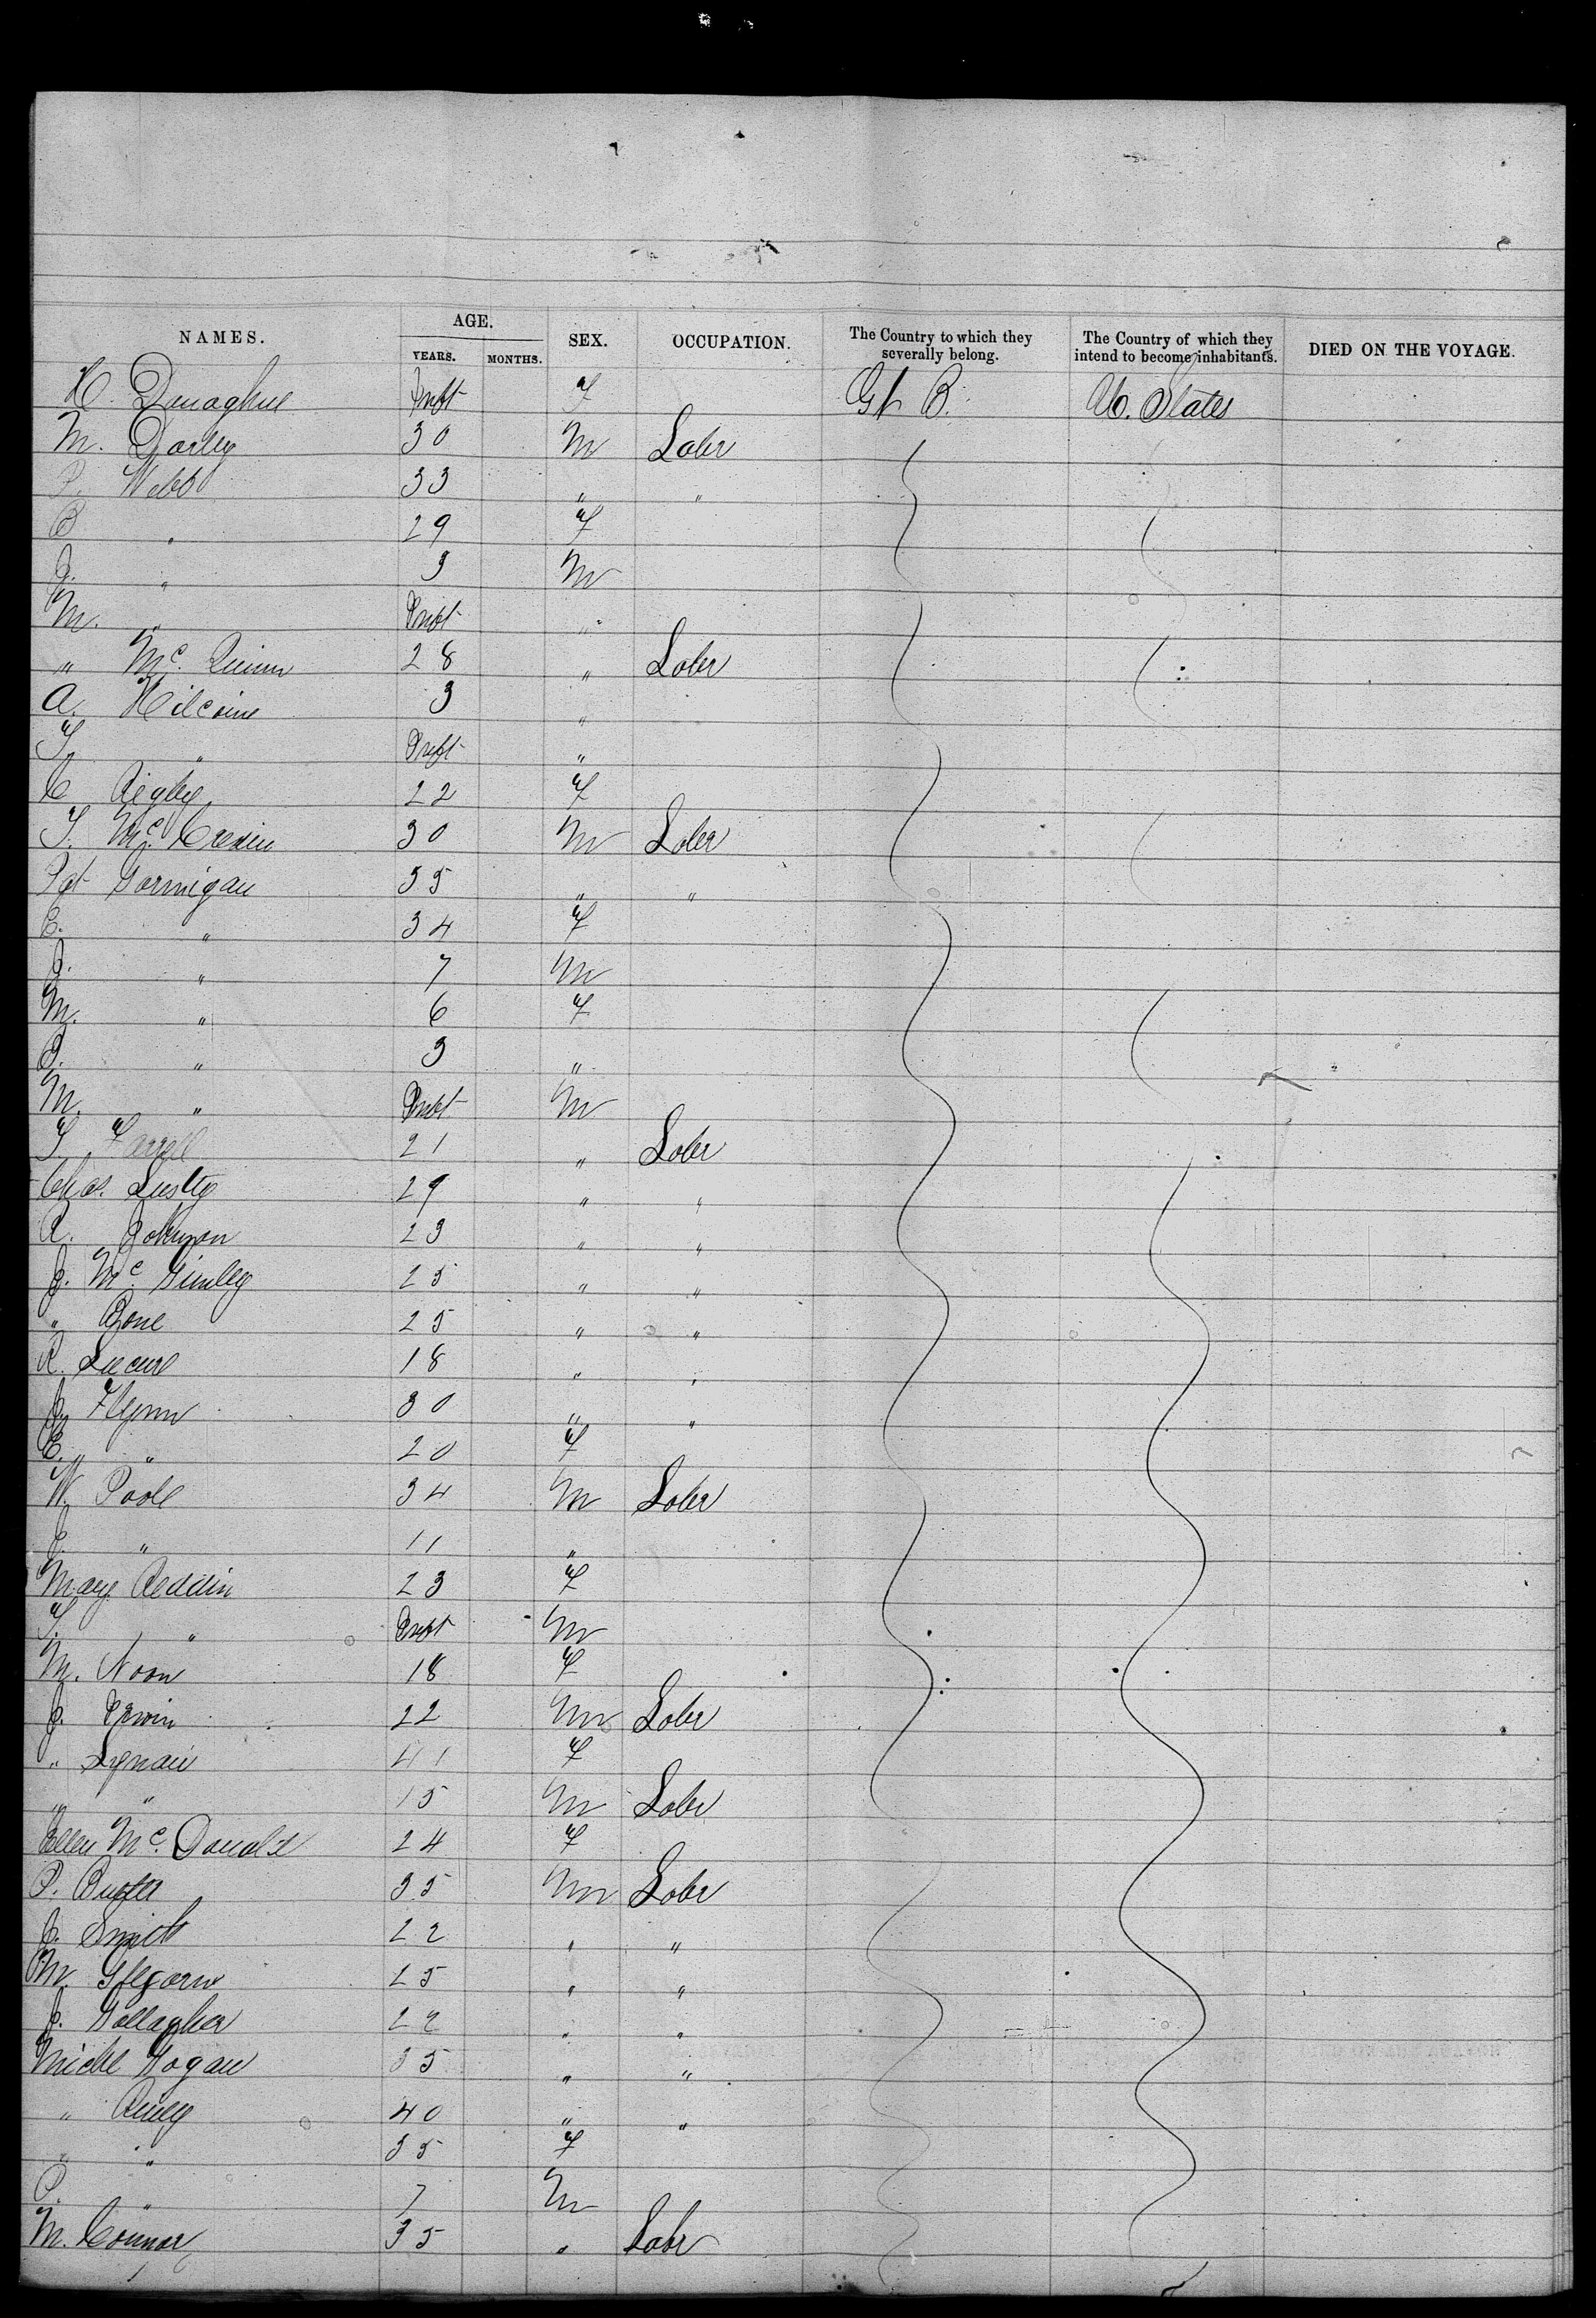 NAMES. AGE. YEARS. MONTHS. SEX. OCCUPATION. The Country to which they severally belong. The Country of which they intend to become inhabitants. DIED ON THE VOYAGE.
H. Donaghue Inft F Gt B. U. States
M. Darley 30 M Labr
P. Webb 33 " "
B " 29 F
J. " 3 M
M. " Inft "
" Mc. Quinn 28 " Labr
A. Kilcoine 3 "
T. " Inft "
C Rigley 22 F
T. Mc. 30 M Labr
Pat Gormigan 35 " "
C. " 34 F
J. " 7 M
M. " 6 F
J. " 3 "
M. " Inft M
T. Farrell 21 " Labr
Chas. Lustig 29 " "
R. Johnson 23 " "
J. Mc. Ginley 25 " "
" 25 " "
R. 18 " "
J. Flynn 30 " "
E. " 20 F
W. Poole 34 M Labr
J. " 11 "
Mary Reddin 23 F
T. " Inft M
M. Noon 18 F
J. Erwin 22 M Labr
" 41 F
" " 15 M Labr
Ellen Mc. Donald 24 F
P. 35 M Labr
J. Smith 22 " "
M. 25 " "
J. Gallagher 22 " "
Michl Hogan 35 " "
" Reily 40 " "
" " 35 F
P. " 7 M
M. Connor 35 " Labr